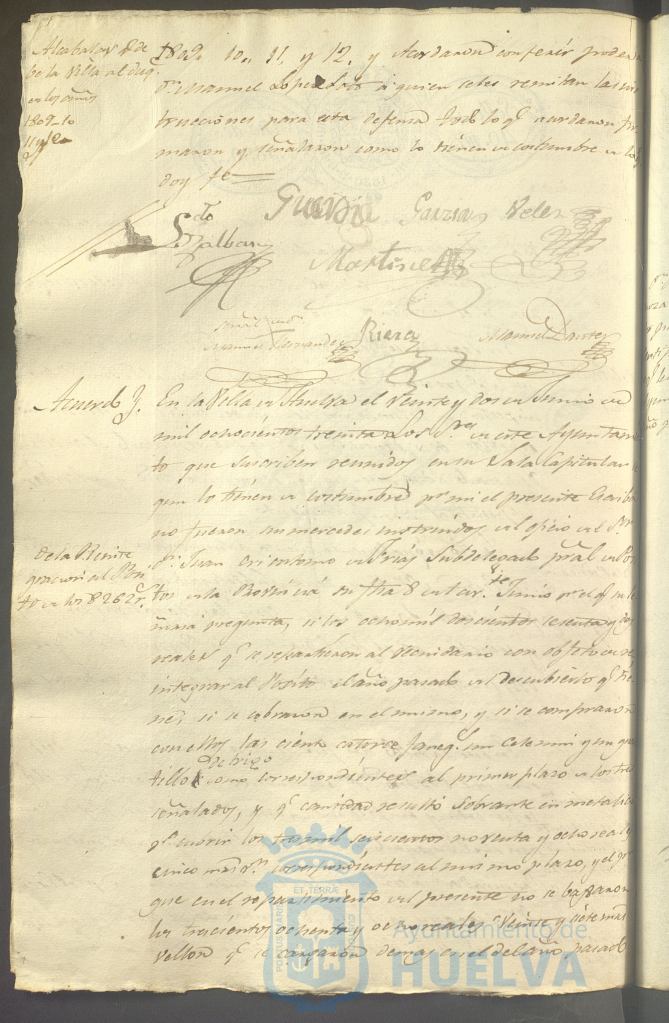 Alcabalas q.e de
be la Villa al Duq.
en los años
1809-10
11 y 12
1809. 10., 11, y 12. y Acordaron conferir poder a
D.n Manuel Lopez a quien se les remitan las ins
trucciones para esta defensa todo lo q.e acordaron fir
maron y señalaron como lo tienen de costumbre
doy fe
Garzia Velez
S.to
Martinez
Riera
Manuel
Acuerdo
En la Villa de Huelva el veinte y dos de Junio de
mil ochocientos treinta Los S.res de este Ayuntam
to que suscriben reunidos en su Sala Capitular
que lo tienen de costumbre p.r mi el presente Escriba
no fueron sus mercedes instruidos del oficio del S.r
D.n Juan Crisostomo de Frias Subdelegado pral de Po
de la Reinte
gracion al Posi
to de los 8262 r.s
tos de la Provincia su fha 8 del cor.te Junio p.r el q.e
pregunta, si los ocho mil doscientos sesenta y dos
reales q.e se repartieron al vecindario con objeto de re
integrar al Posito el año pasado del descubierto q.e tie
ne, si se cobraron en el mismo, y si se compraron
con ellos las ciento catorce faneg.s un celemin y un qu
de trigo
tillo como correspondientes al primer plazo de los tres
señalados, y q.e cantidad resultó sobrante en metalico
p.a cubrir los tres mil seiscientos noventa y ocho reales
cinco mrs v.n correspondientes al mismo plazo, y el p.r
que en el repartimiento del presente no se bajaron
los trescientos ochenta y ocho reales veinte y siete mrs
vellon q.e se cargaron demas en el del año pasado
Ayuntamiento de
HUELVA